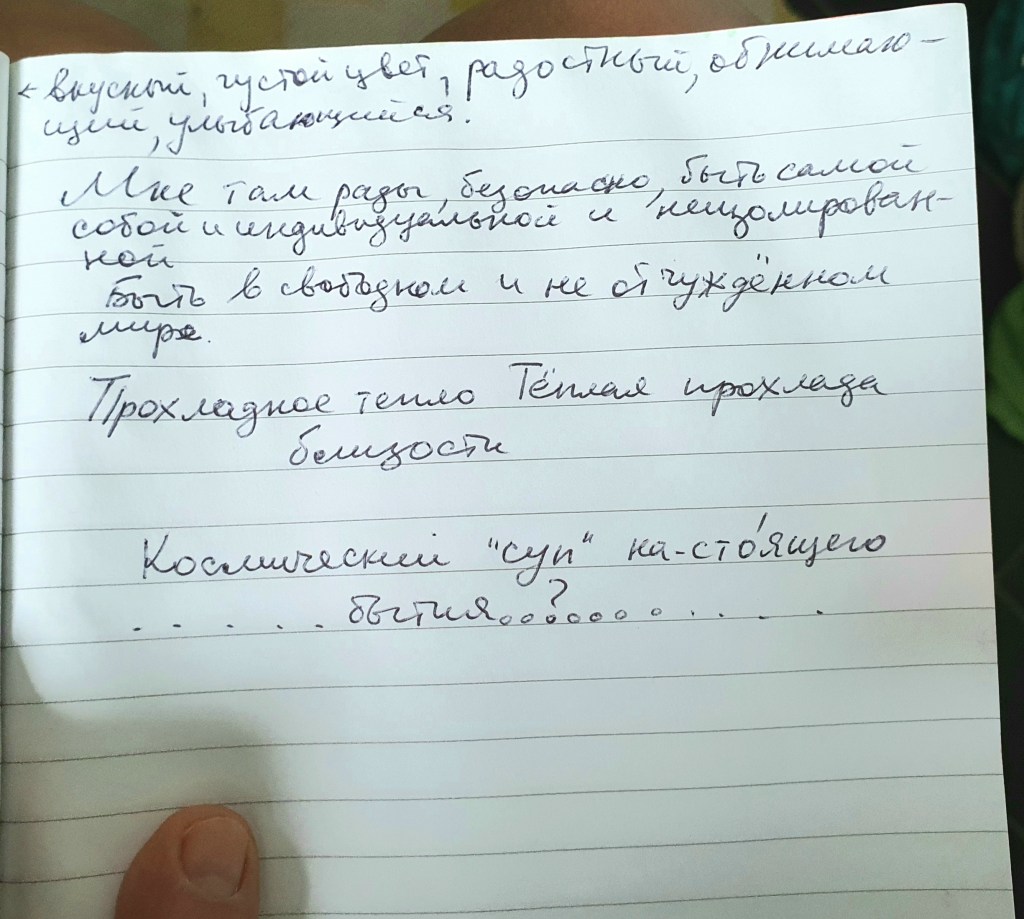 ← вкусный, густой цвет, радостный, обнимаю-
щий, улыбающийся!
Мне там рады, безопасно, быть самой
собой и индивидуальной и неизолирован-
ной
Быть в свободном и не отчуждённом
мире.
Прохладное тепло Тёплая прохлада
близости
Космический "суп" на-сто́ящего
. . . . . бытия..?..... . . .